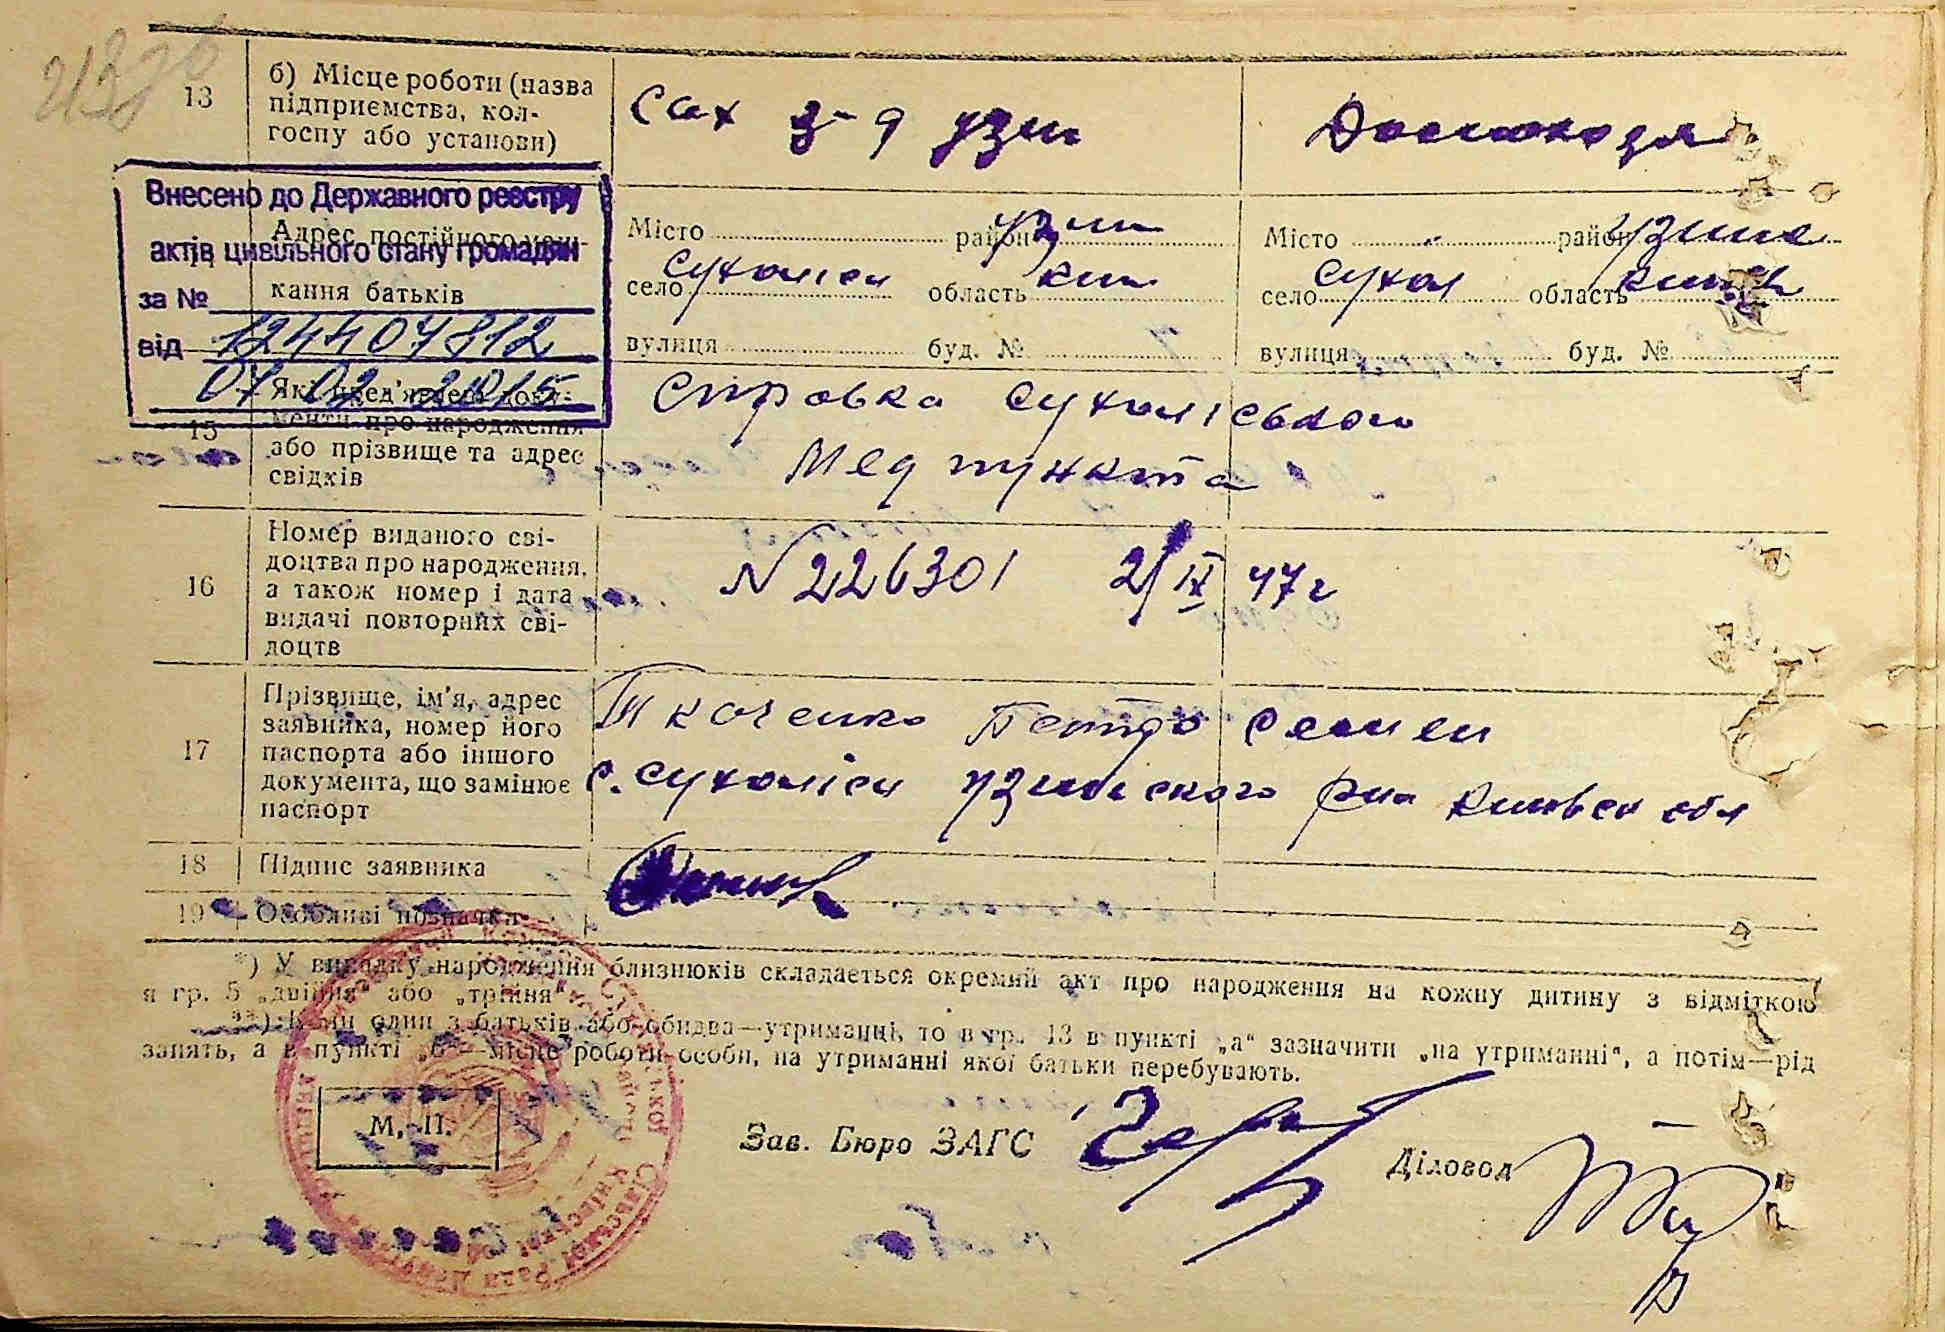 13
б) Місце роботи (назва
підприємства, кол-
госпу або установи)
Сах з-д Узин
Домогосп
Внесено до Державного реєстру
актів цивільного стану громадян
за №
від 124407812
07 02 2015
Адрес постійного меш-
кання батьків
Місто район Узин
село Сухоліси область Київ
вулиця буд. №
Місто " район Узин
село Сухол область Київ
вулиця буд. №
15
Які пред'явлені доку-
менти про народження
або прізвище та адрес
свідків
Справка Сухоліського
Мед пункта
16
Номер виданого сві-
доцтва про народження,
а також номер і дата
видачі повторних сві-
доцтв
N 226301 2/IX 47 г
17
Прізвище, ім'я, адрес
заявника, номер його
паспорта або іншого
документа, що замінює
паспорт
Ткаченко Петро Семен
с. Сухоліси Узинского р-на Киевск обл
18
Підпис заявника
19
Особливі позначки
*) У випадку народження близнюків складається окремий акт про народження на кожну дитину з відміткою
я гр. 5 „двійня“ або „трійня“.
**) Коли один з батьків або обидва—утриманці, то в гр. 13 в пункті „а“ зазначити „на утриманні“, а потім—рід
занять, а в пункті „б“—місце роботи особи, на утриманні якої батьки перебувають.
М. П.
Зав. Бюро ЗАГС
Діловод